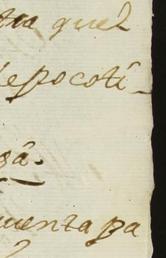 tra quel
depocoti-
sâ.
cuenta pa